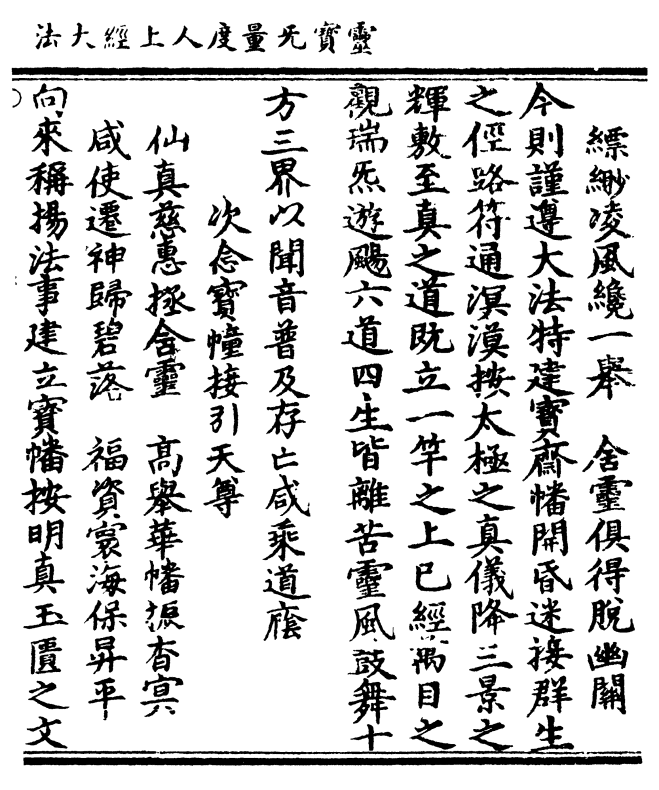 靈寶无量度人上經大法
縹緲凌風纔一舉　含靈俱得脫幽關
今則謹遵大法特建寶齋幡開昏迷接群生
之徑路符通溟漠按太極之真儀降三景之
輝敷至真之道既立一竿之上已經萬目之
觀瑞炁遊颺六道四生皆離苦靈風鼓舞十
方三界以聞音普及存亡咸乘道廕
次念寶幢接引天尊
仙真慈惠拯含靈　高舉華幡振杳冥
咸使遷神歸碧落　福資寰海保昇平
向來稱揚法事建立寶幡按明真玉匱之文